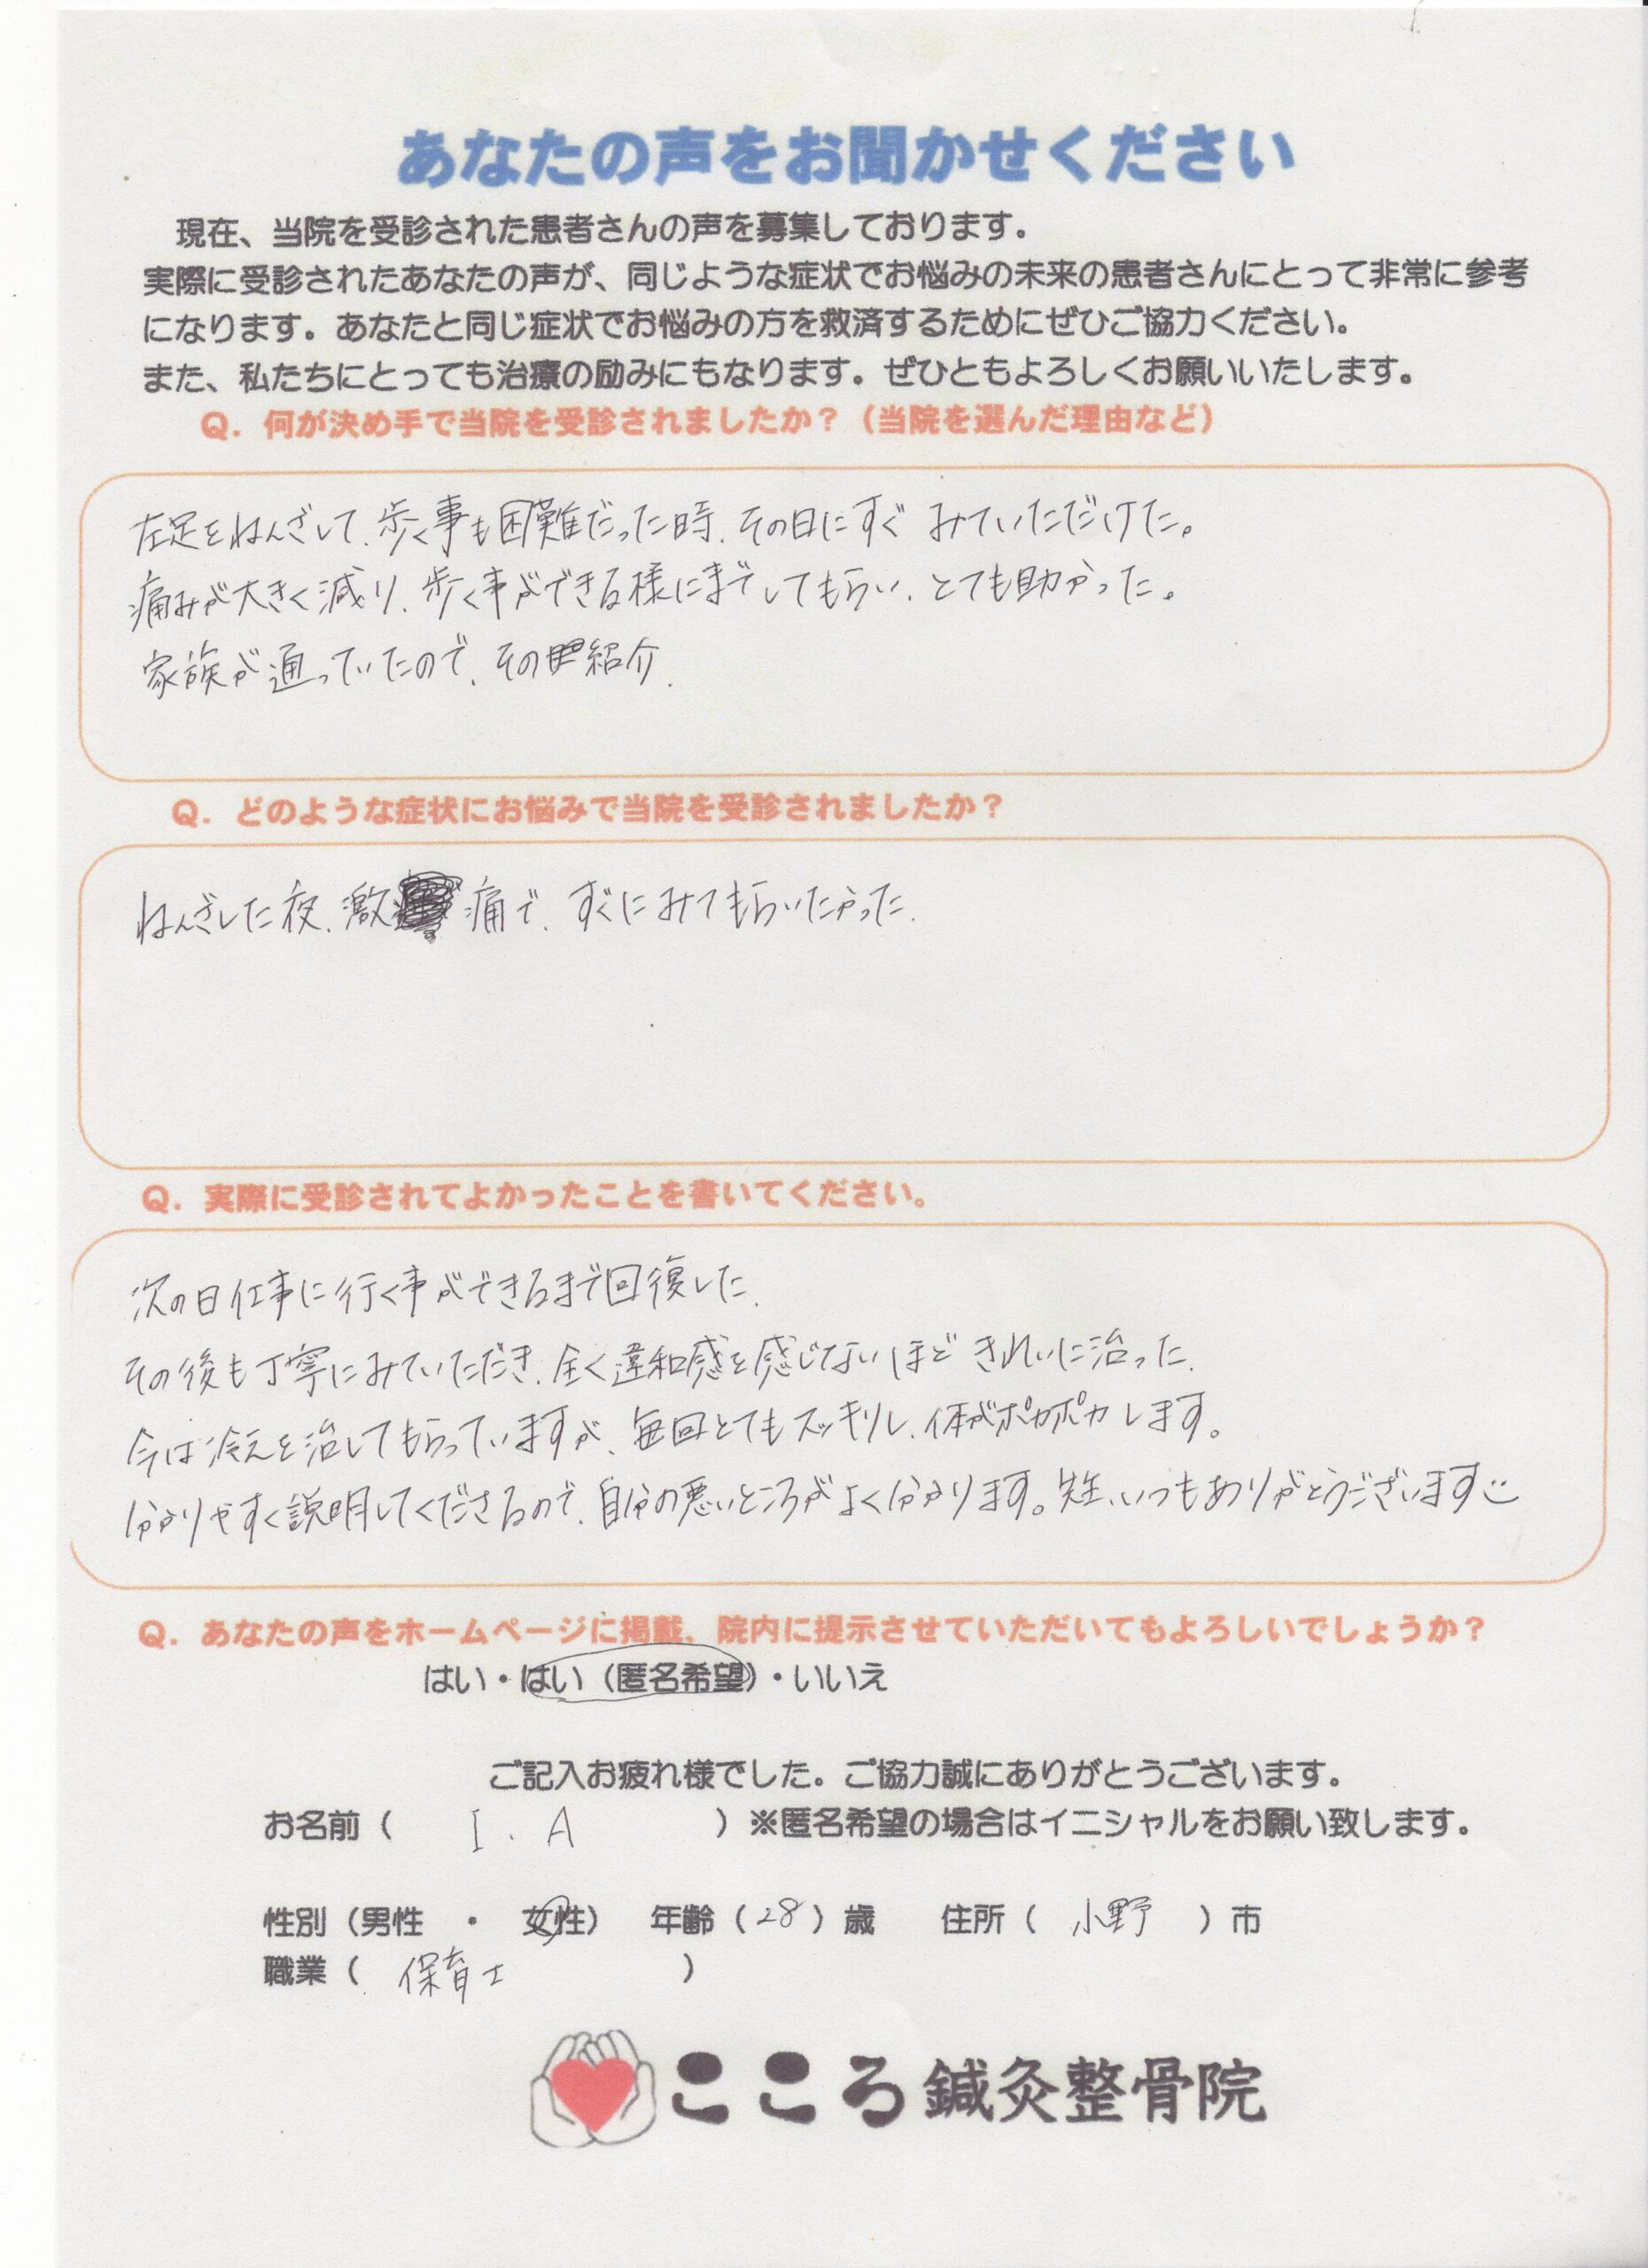 あなたの声をお聞かせください
現在、当院を受診された患者さんの声を募集しております。
実際に受診されたあなたの声が、同じような症状でお悩みの未来の患者さんにとって非常に参考
になります。あなたと同じ症状でお悩みの方を救済するためにぜひご協力ください。
また、私たちにとっても治療の励みにもなります。ぜひともよろしくお願いいたします。
Q. 何が決め手で当院を受診されましたか？（当院を選んだ理由など）
左足をねんざして、歩く事も困難だった時、その日にすぐ みていただけた。
痛みが大きく減り、歩く事ができる様にまでしてもらい、とても助かった。
家族が通っていたので、その紹介.
Q. どのような症状にお悩みで当院を受診されましたか？
ねんざした夜、激痛で、すぐにみてもらいたかった.
Q. 実際に受診されてよかったことを書いてください。
次の日仕事に行く事ができるまで回復した.
その後も丁寧にみていただき、全く違和感を感じないほど きれいに治った.
今は冷えを治してもらっていますが、毎回とてもスッキリし、体がポカポカします。
分かりやすく説明してくださるので、自分の悪いところがよく分かります。先生、いつもありがとうございます
Q. あなたの声をホームページに掲載、院内に提示させていただいてもよろしいでしょうか？
はい・はい（匿名希望）・いいえ
ご記入お疲れ様でした。ご協力誠にありがとうございます。
お名前（ I . A ）※匿名希望の場合はイニシャルをお願い致します。
性別（男性 ・ 女性） 年齢（28）歳 住所（ 小野 ）市
職業（ 保育士 ）
こころ鍼灸整骨院